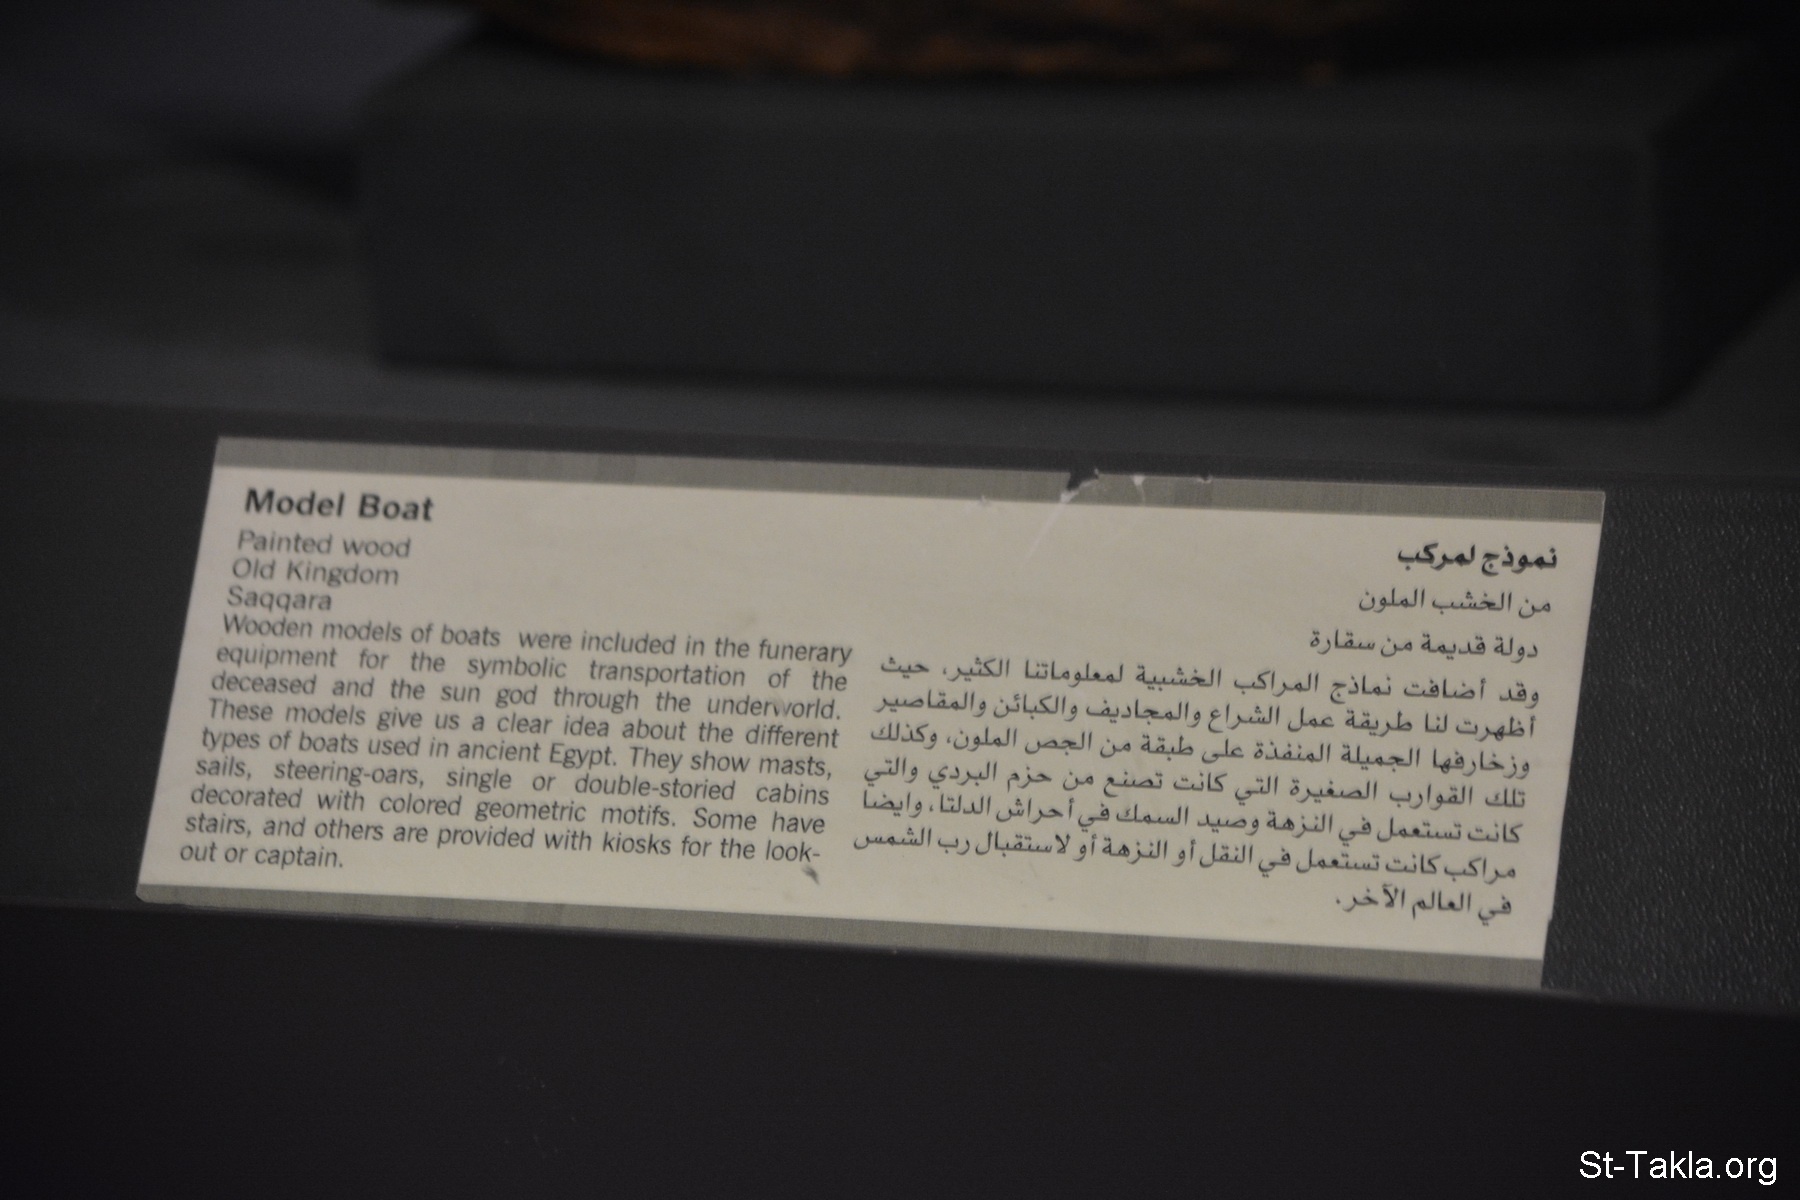 Model Boat
Painted wood
Old Kingdom
Saqqara
Wooden models of boats were included in the funerary
equipment for the symbolic transportation of the
deceased and the sun god through the underworld.
These models give us a clear idea about the different
types of boats used in ancient Egypt. They show masts,
sails, steering-oars, single or double-storied cabins
decorated with colored geometric motifs. Some have
stairs, and others are provided with kiosks for the look-
out or captain.
نموذج لمركب
من الخشب الملون
دولة قديمة من سقارة
وقد أضافت نماذج المراكب الخشبية لمعلوماتنا الكثير، حيث
أظهرت لنا طريقة عمل الشراع والمجاديف والكبائن والمقاصير
وزخارفها الجميلة المنفذة على طبقة من الجص الملون، وكذلك
تلك القوارب الصغيرة التي كانت تصنع من حزم البردي والتي
كانت تستعمل في النزهة وصيد السمك في أحراش الدلتا، وايضا
مراكب كانت تستعمل في النقل أو النزهة أو لاستقبال رب الشمس
في العالم الآخر.
St-Takla.org